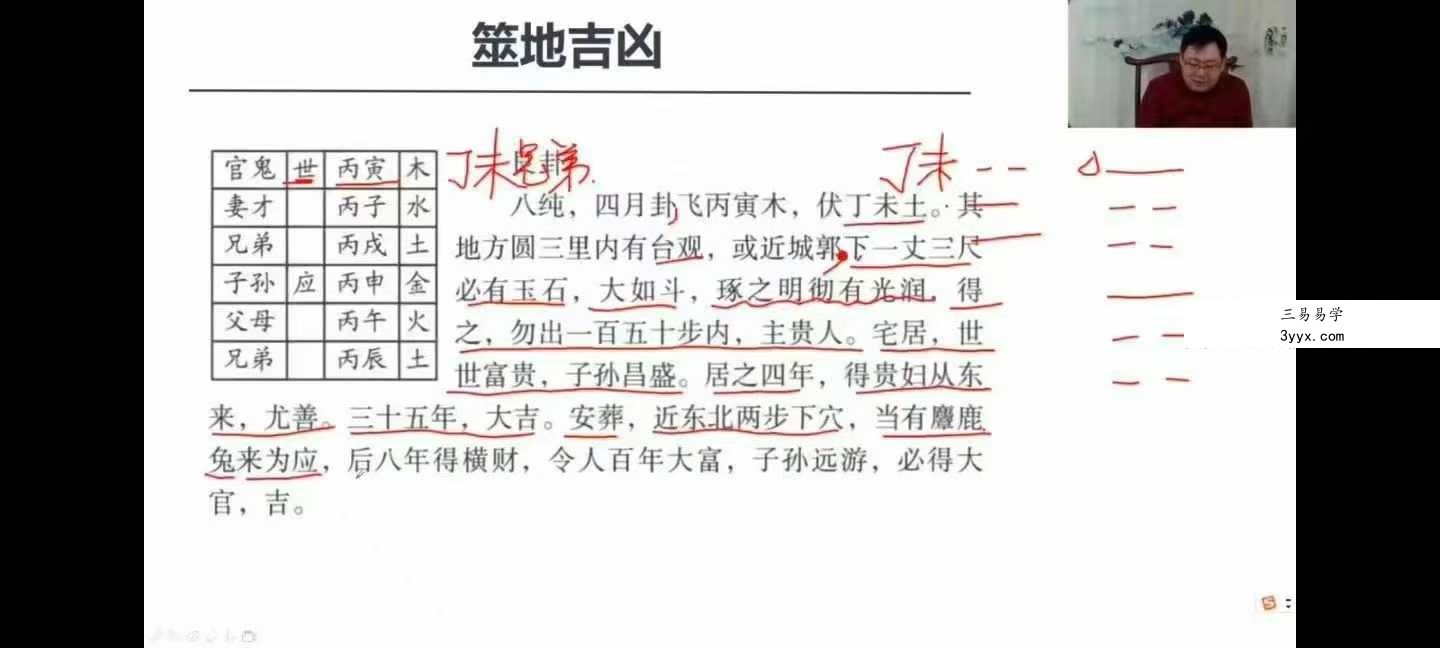 筮地吉凶
官鬼 世 丙寅 木
妻才 丙子 水
兄弟 丙戌 土
子孙 应 丙申 金
父母 丙午 火
兄弟 丙辰 土
丁未 兄弟
卦
丁未
八纯，四月卦，飞丙寅木，伏丁未土。其
地方圆三里内有台观，或近城郭，下一丈三尺
必有玉石，大如斗，琢之明彻有光润，得
之，勿出一百五十步内，主贵人。宅居，世
世富贵，子孙昌盛。居之四年，得贵妇从东
来，尤善。三十五年，大吉。安葬，近东北两步下穴，当有麞鹿
兔来为应，后八年得横财，令人百年大富，子孙远游，必得大
官，吉。
三易易学
3yyx.com